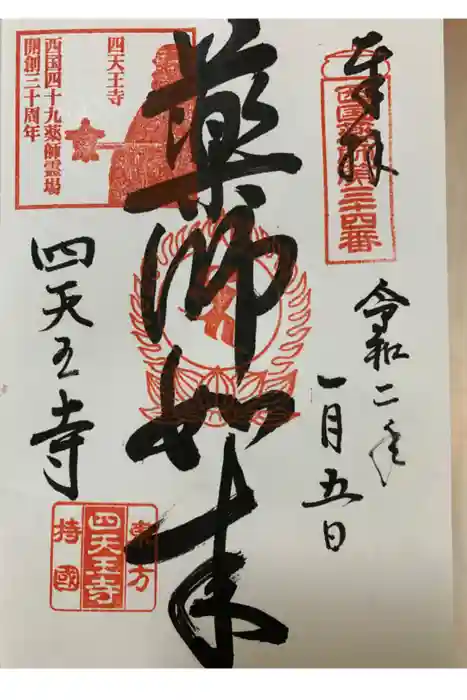 奉拝
西国薬師第三十四番
令和二年
一月五日
薬師如来
四天王寺
西国四十九薬師霊場
開創三十周年
四天王寺
東方
四天王寺
持國